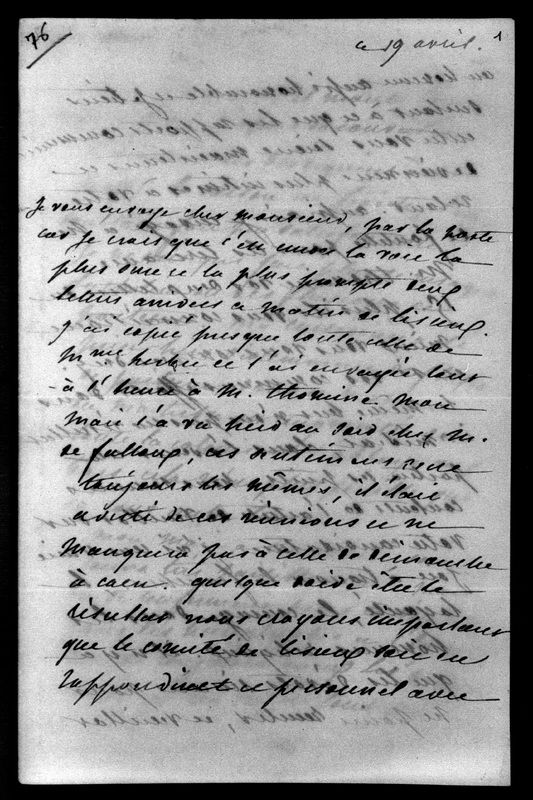 76
1
ce 19 avril.
Je vous envoye cher monsieur, par la poste
car je crois que c'est encore la voie la
plus sure et la plus prompte deux
lettres arrivées ce matin de Lisieux.
J'ai copié presque toute celle de
Mme herbin et l'ai envoyée tout
à l'heure à M. thomine. mon
mari l'a vu hier au soir chez M.
de falloux, ces sentiments sont
toujours les mêmes, il étais
averti de ces réunions et ne
manquera pas à celle de dimanche
à caen. quelque soit le
résultat nous croyons important
que le comité de lisieux soit en
rapport direct et personnel avec